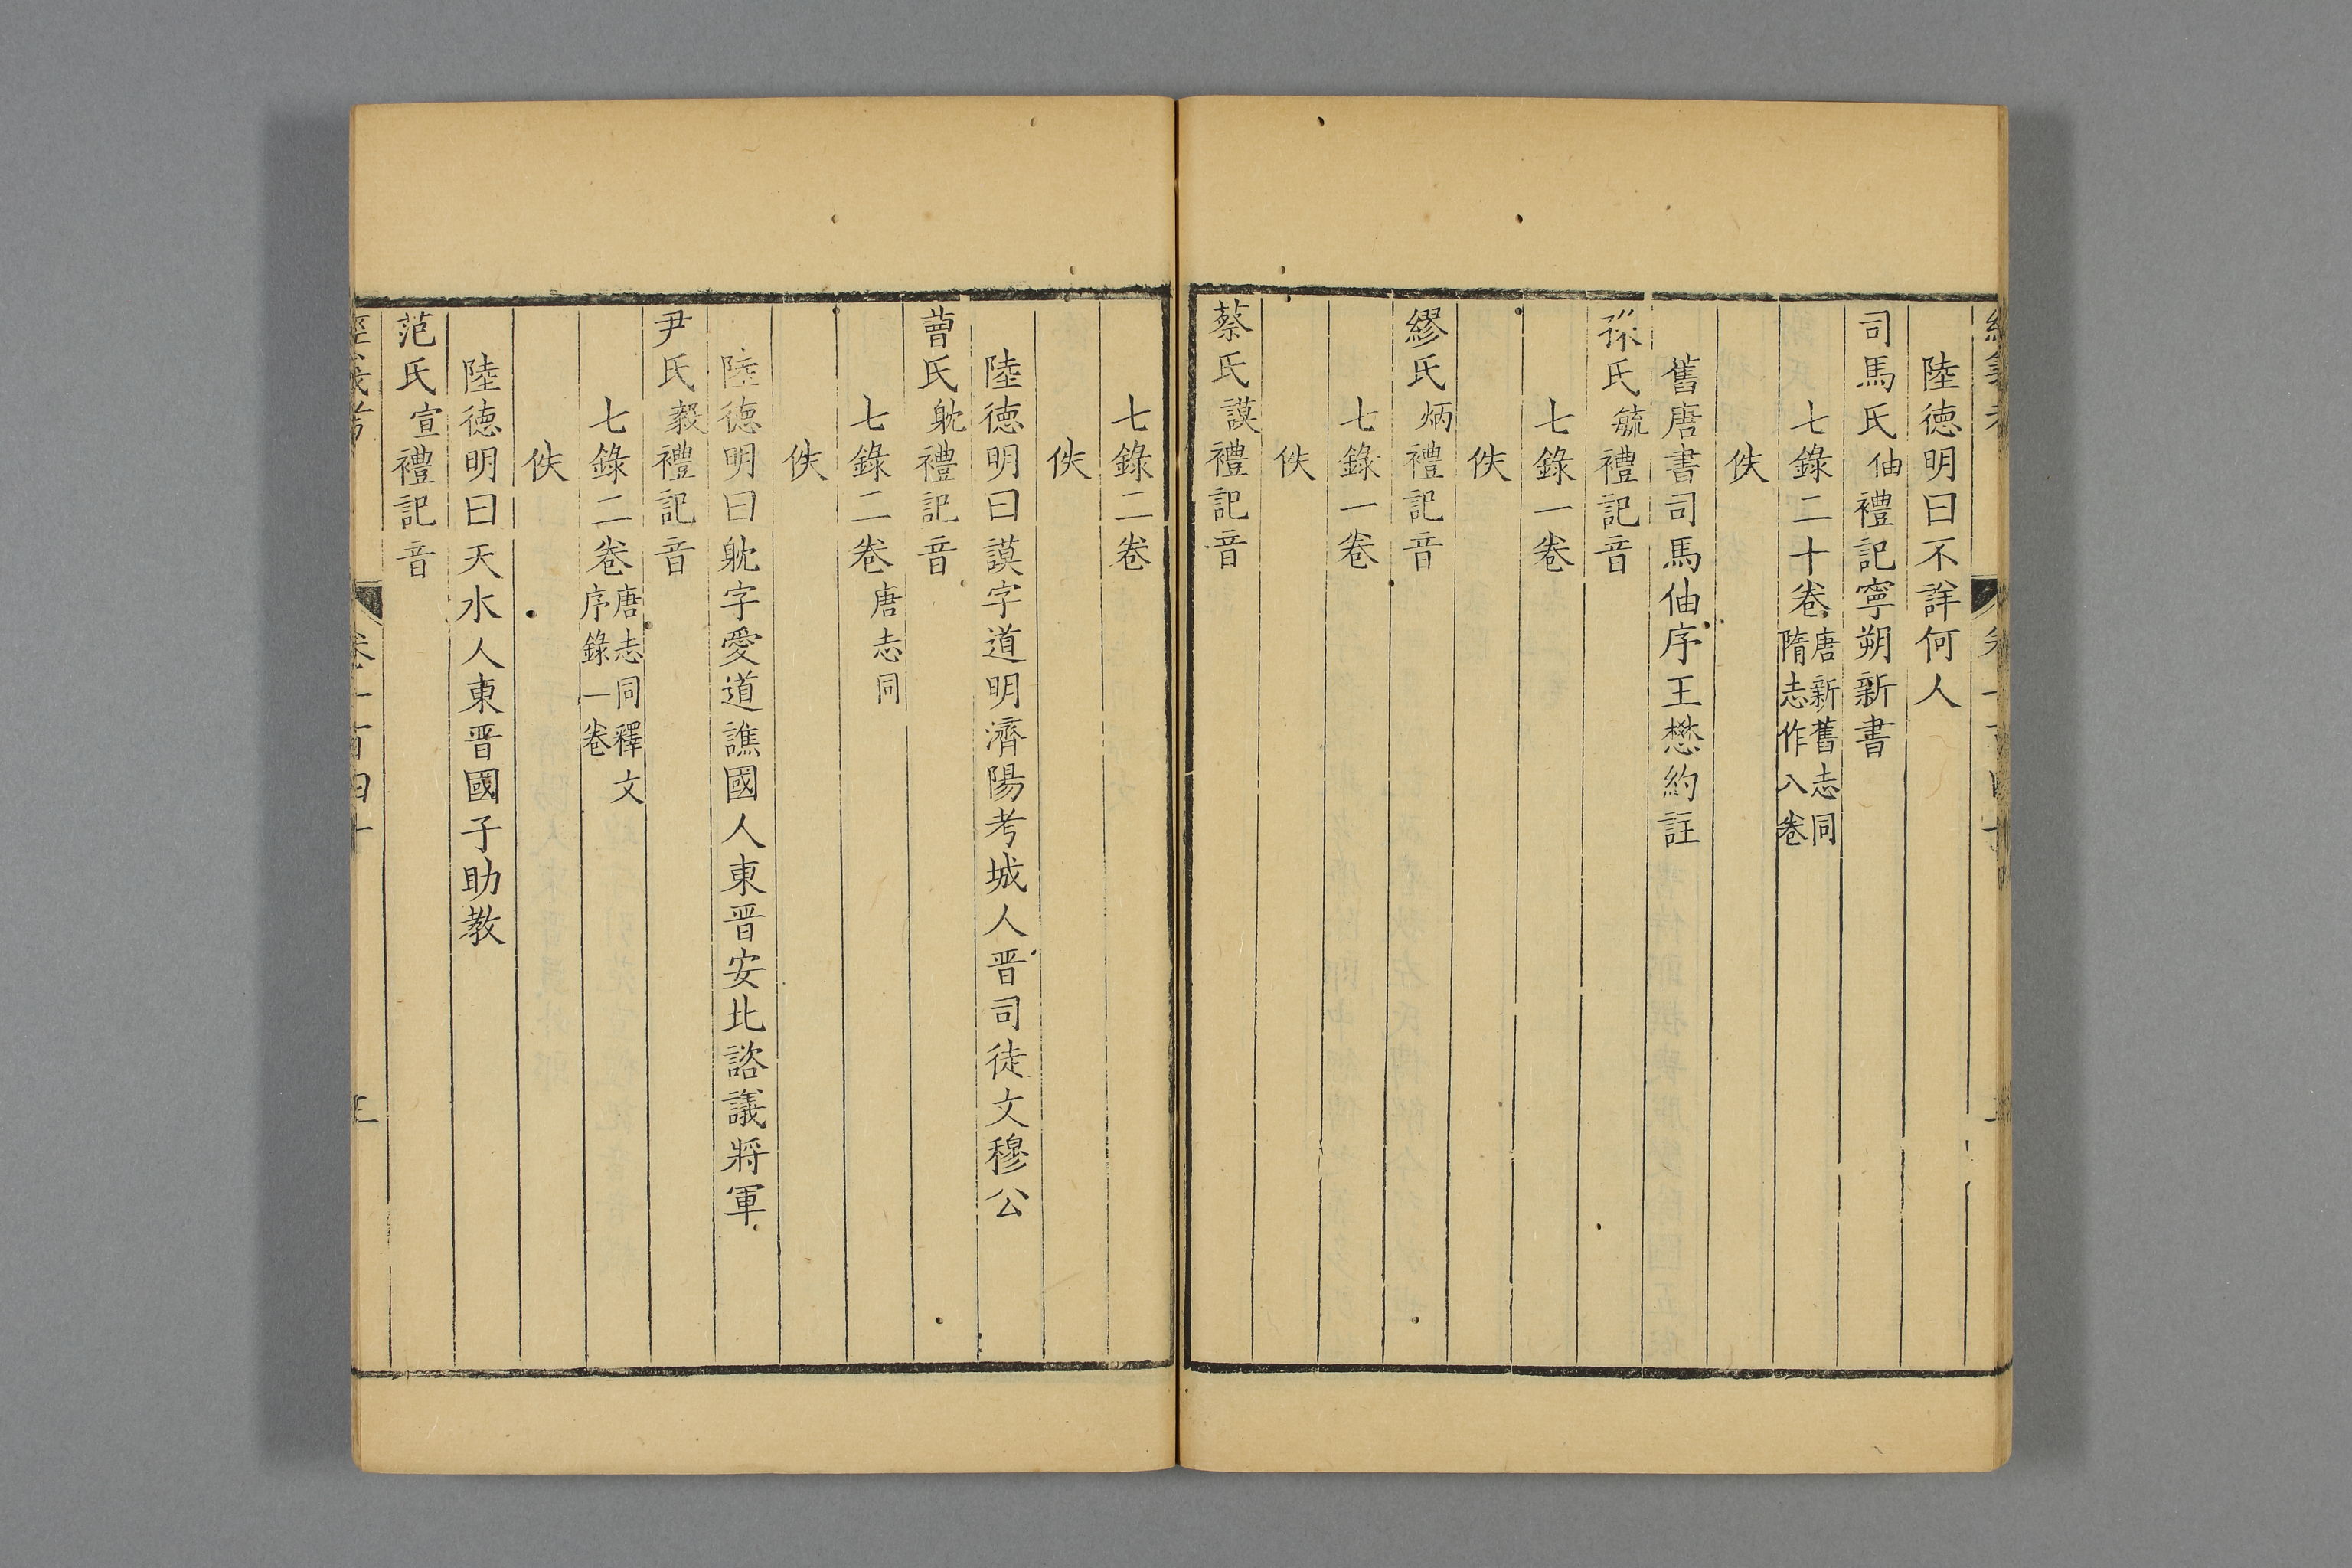 陸德明曰不詳何人
司馬氏伷禮記寧朔新書
七錄二十卷唐新舊志同
隋志作八卷
佚
舊唐書司馬伷序王懋約註
孫氏毓禮記音
七錄一卷
佚
繆氏炳禮記音
七錄一卷
佚
蔡氏謨禮記音
七錄二卷
佚
陸德明曰謨字道明濟陽考城人晋司徒文穆公
曹氏躭禮記音
七錄二卷唐志同
佚
陸德明曰躭字愛道譙國人東晋安北諮議將軍
尹氏毅禮記音
七錄二卷唐志同釋文
序錄一卷
佚
陸德明曰天水人東晋國子助教
范氏宣禮記音
經義考
卷一百四十